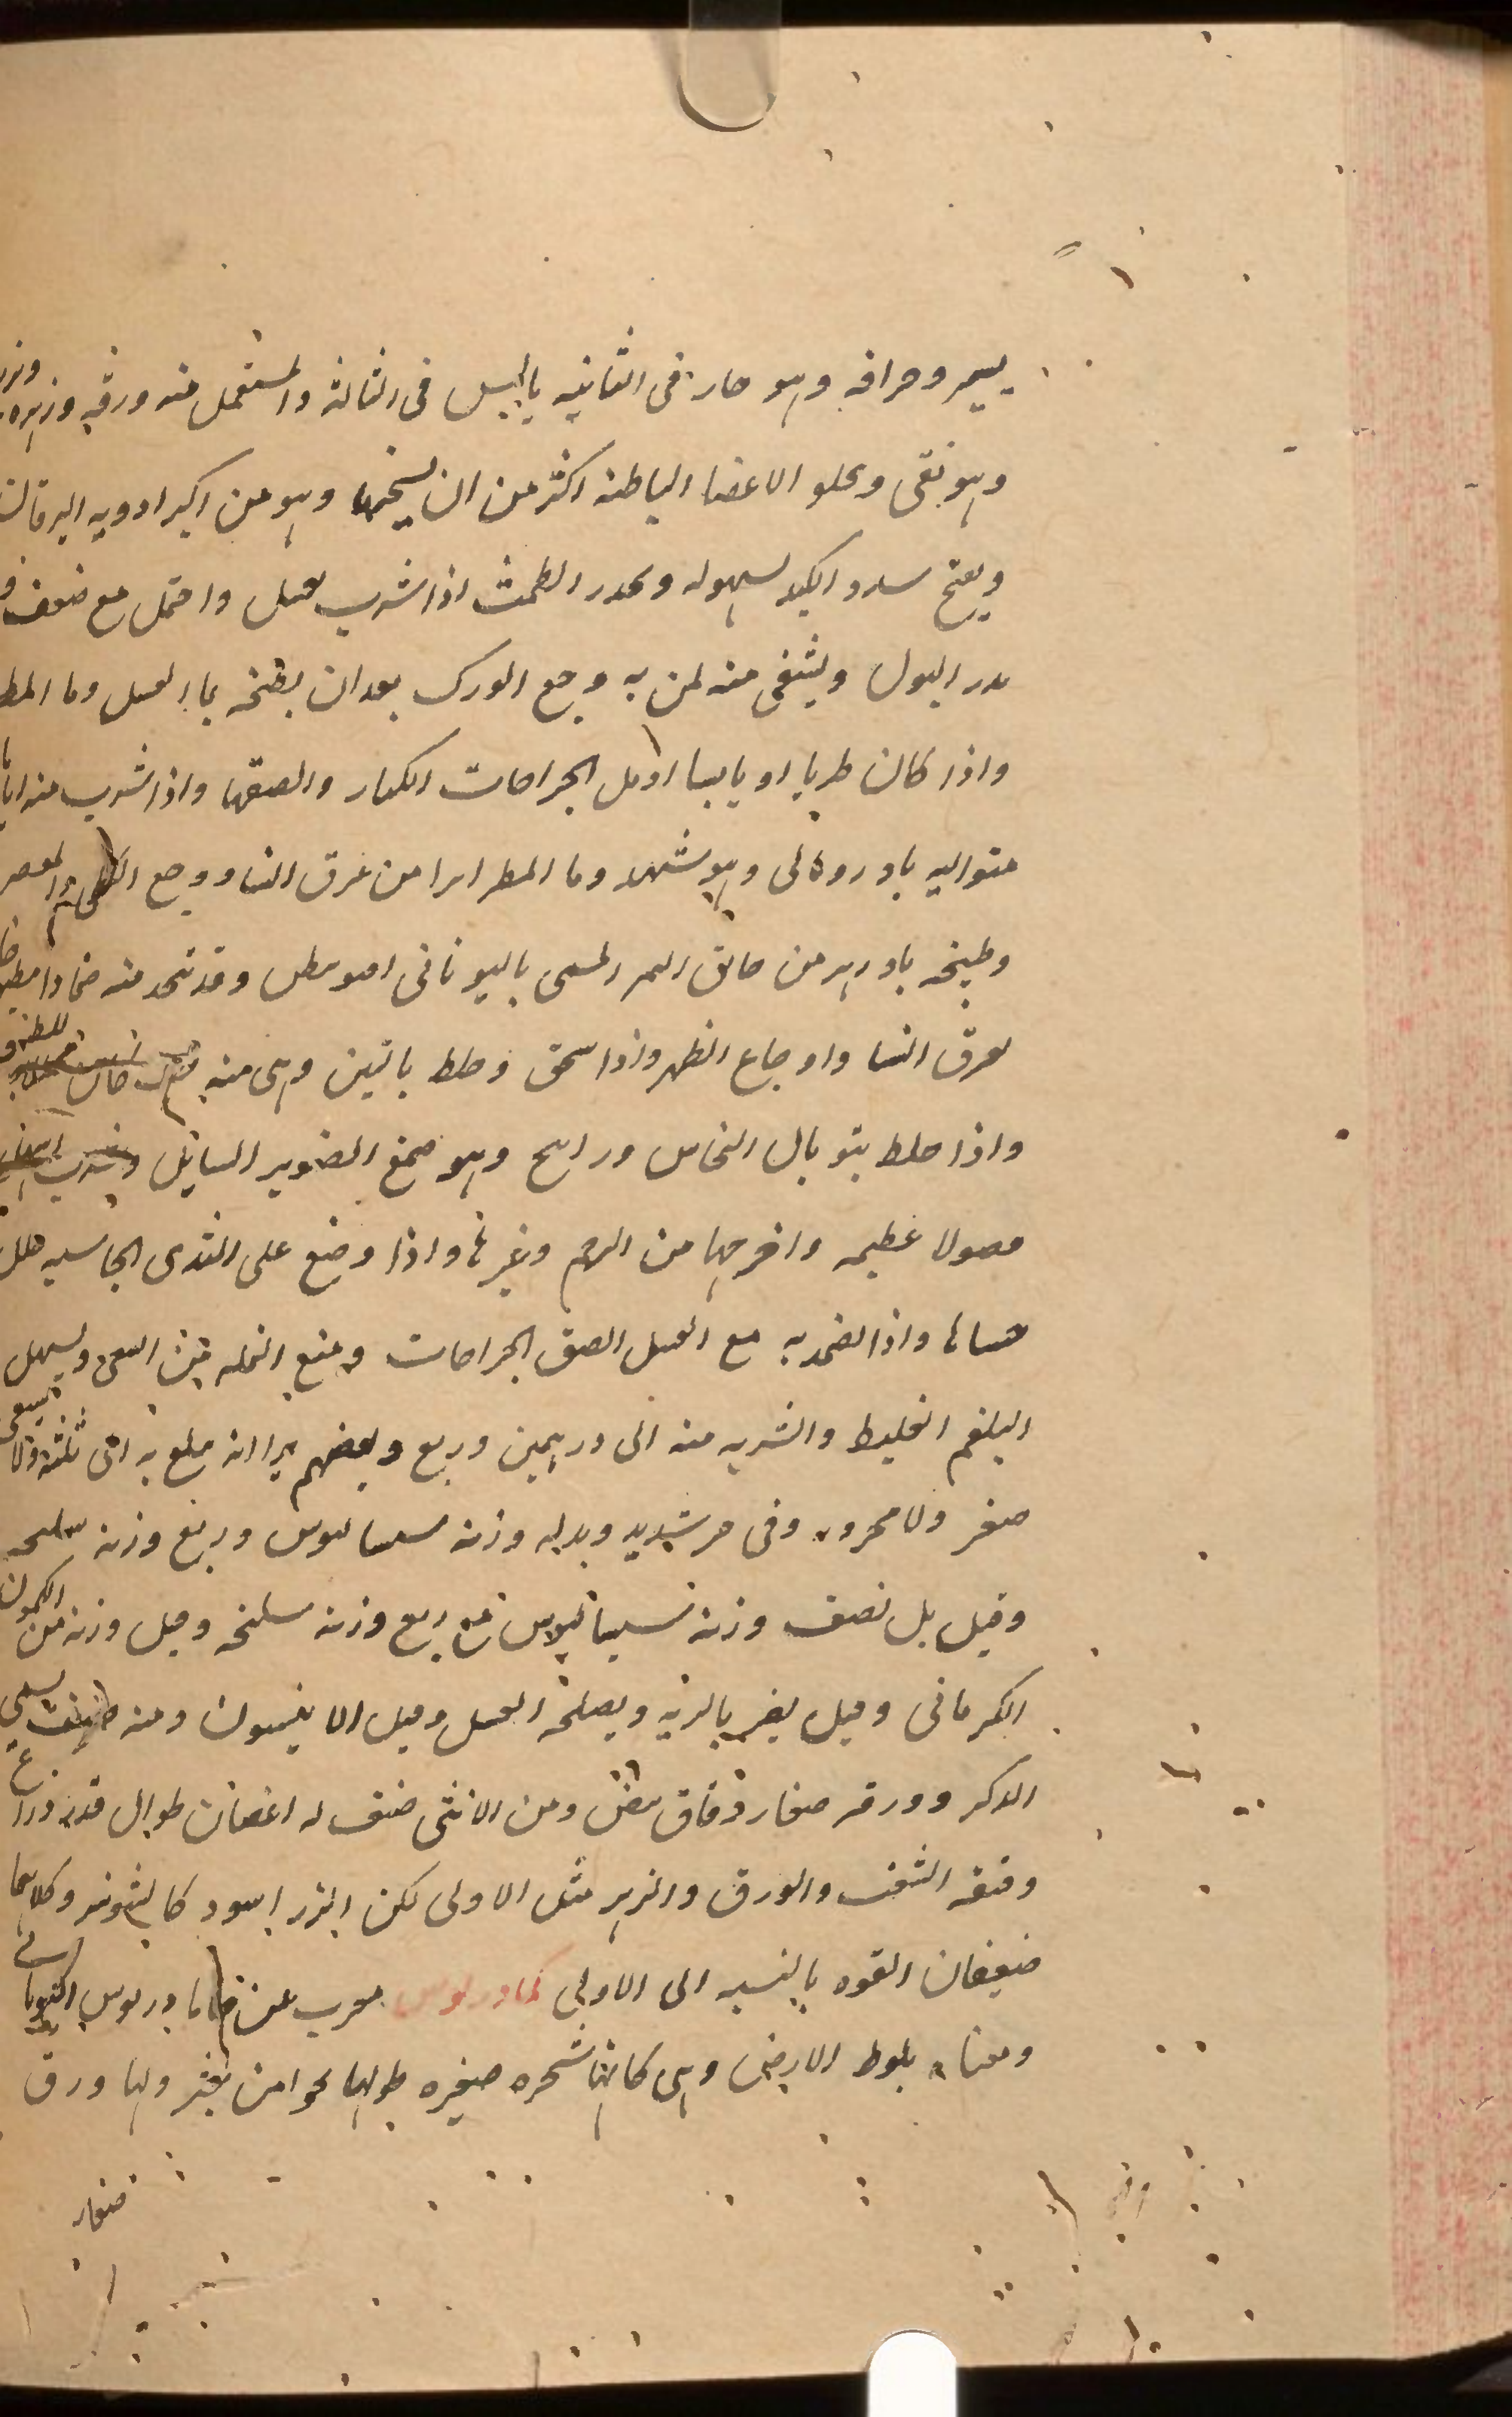 يسير وحرافه وهو حار فى الثانيه يابس فى الثالثة والمستعمل منه ورقه وزهره وبزر
وهو ينقى ويجلو الاعضا الباطنه اكثر من ان يسخنها وهو من اكبر ادويه اليرقان
ويفتح سدد الكبد بسهوله ويحدر الطمث اذا شرب بعسل واحتمل مع ضعفه
يدر البول ويشفى منه لمن به وجع الورك بعد ان يطبخه بماء العسل وما المطر
واذا كان طريا او يابسا ادمل الجراحات الكبار والصقها واذا شرب منه اياما
متواليه بادرومالى وهو شهد وما المطر ابرا من عرق النسا ووجع الكلى والمعص
وطبيخه بادزهر من خانق النمر المسمى باليونانى وقد يتخذ منه ضمادا
لعرق النسا واوجاع الظهر واذا سحق وخلط بالتين وهى منه
واذا خلط بتوبال النحاس وراتنج وهو صمغ الصنوبر السائل
فصولا غظيمه واخرجها من الرحم وغيرها واذا وضع على الثدى الجاسيه حلل
جساها واذا تضمد به مع العسل الصق الجراحات ومنع النمله من السعى ويسهل
البلغم الغليظ والشربه منه الى درهمين وربع وبعضهم يرا انه يبلغ به الى ثلثة ولا يسقى
صغر ولا محرور وفى حر شديد وبدله وزنه سيساليوس وربع وزنه سليخه
وقيل بل نصف وزنه سيساليوس مع ربع وزنه سليخه وقيل وزنه من الكمون
الكرمانى وقيل يضر بالريه ويصلحه العسل وقيل الا ينيسون ومنه صنف يسمى
الذكر وورقه صغار دقاق بيض ومن الانثى صنف له اغصان طوال قدر ذراع
دقيقه الشعب والورق والزهر مثل الاولى لكن البزر اسود كالشونيز وكلاهما
ضعيفان القوه بالنسبه الى الاولى كمادريوس معرب عن خامادريوس
ومعناه بلوط الارض وهى كانها شجره صغيره طولها نحوا من شبر ولها ورق
صغار